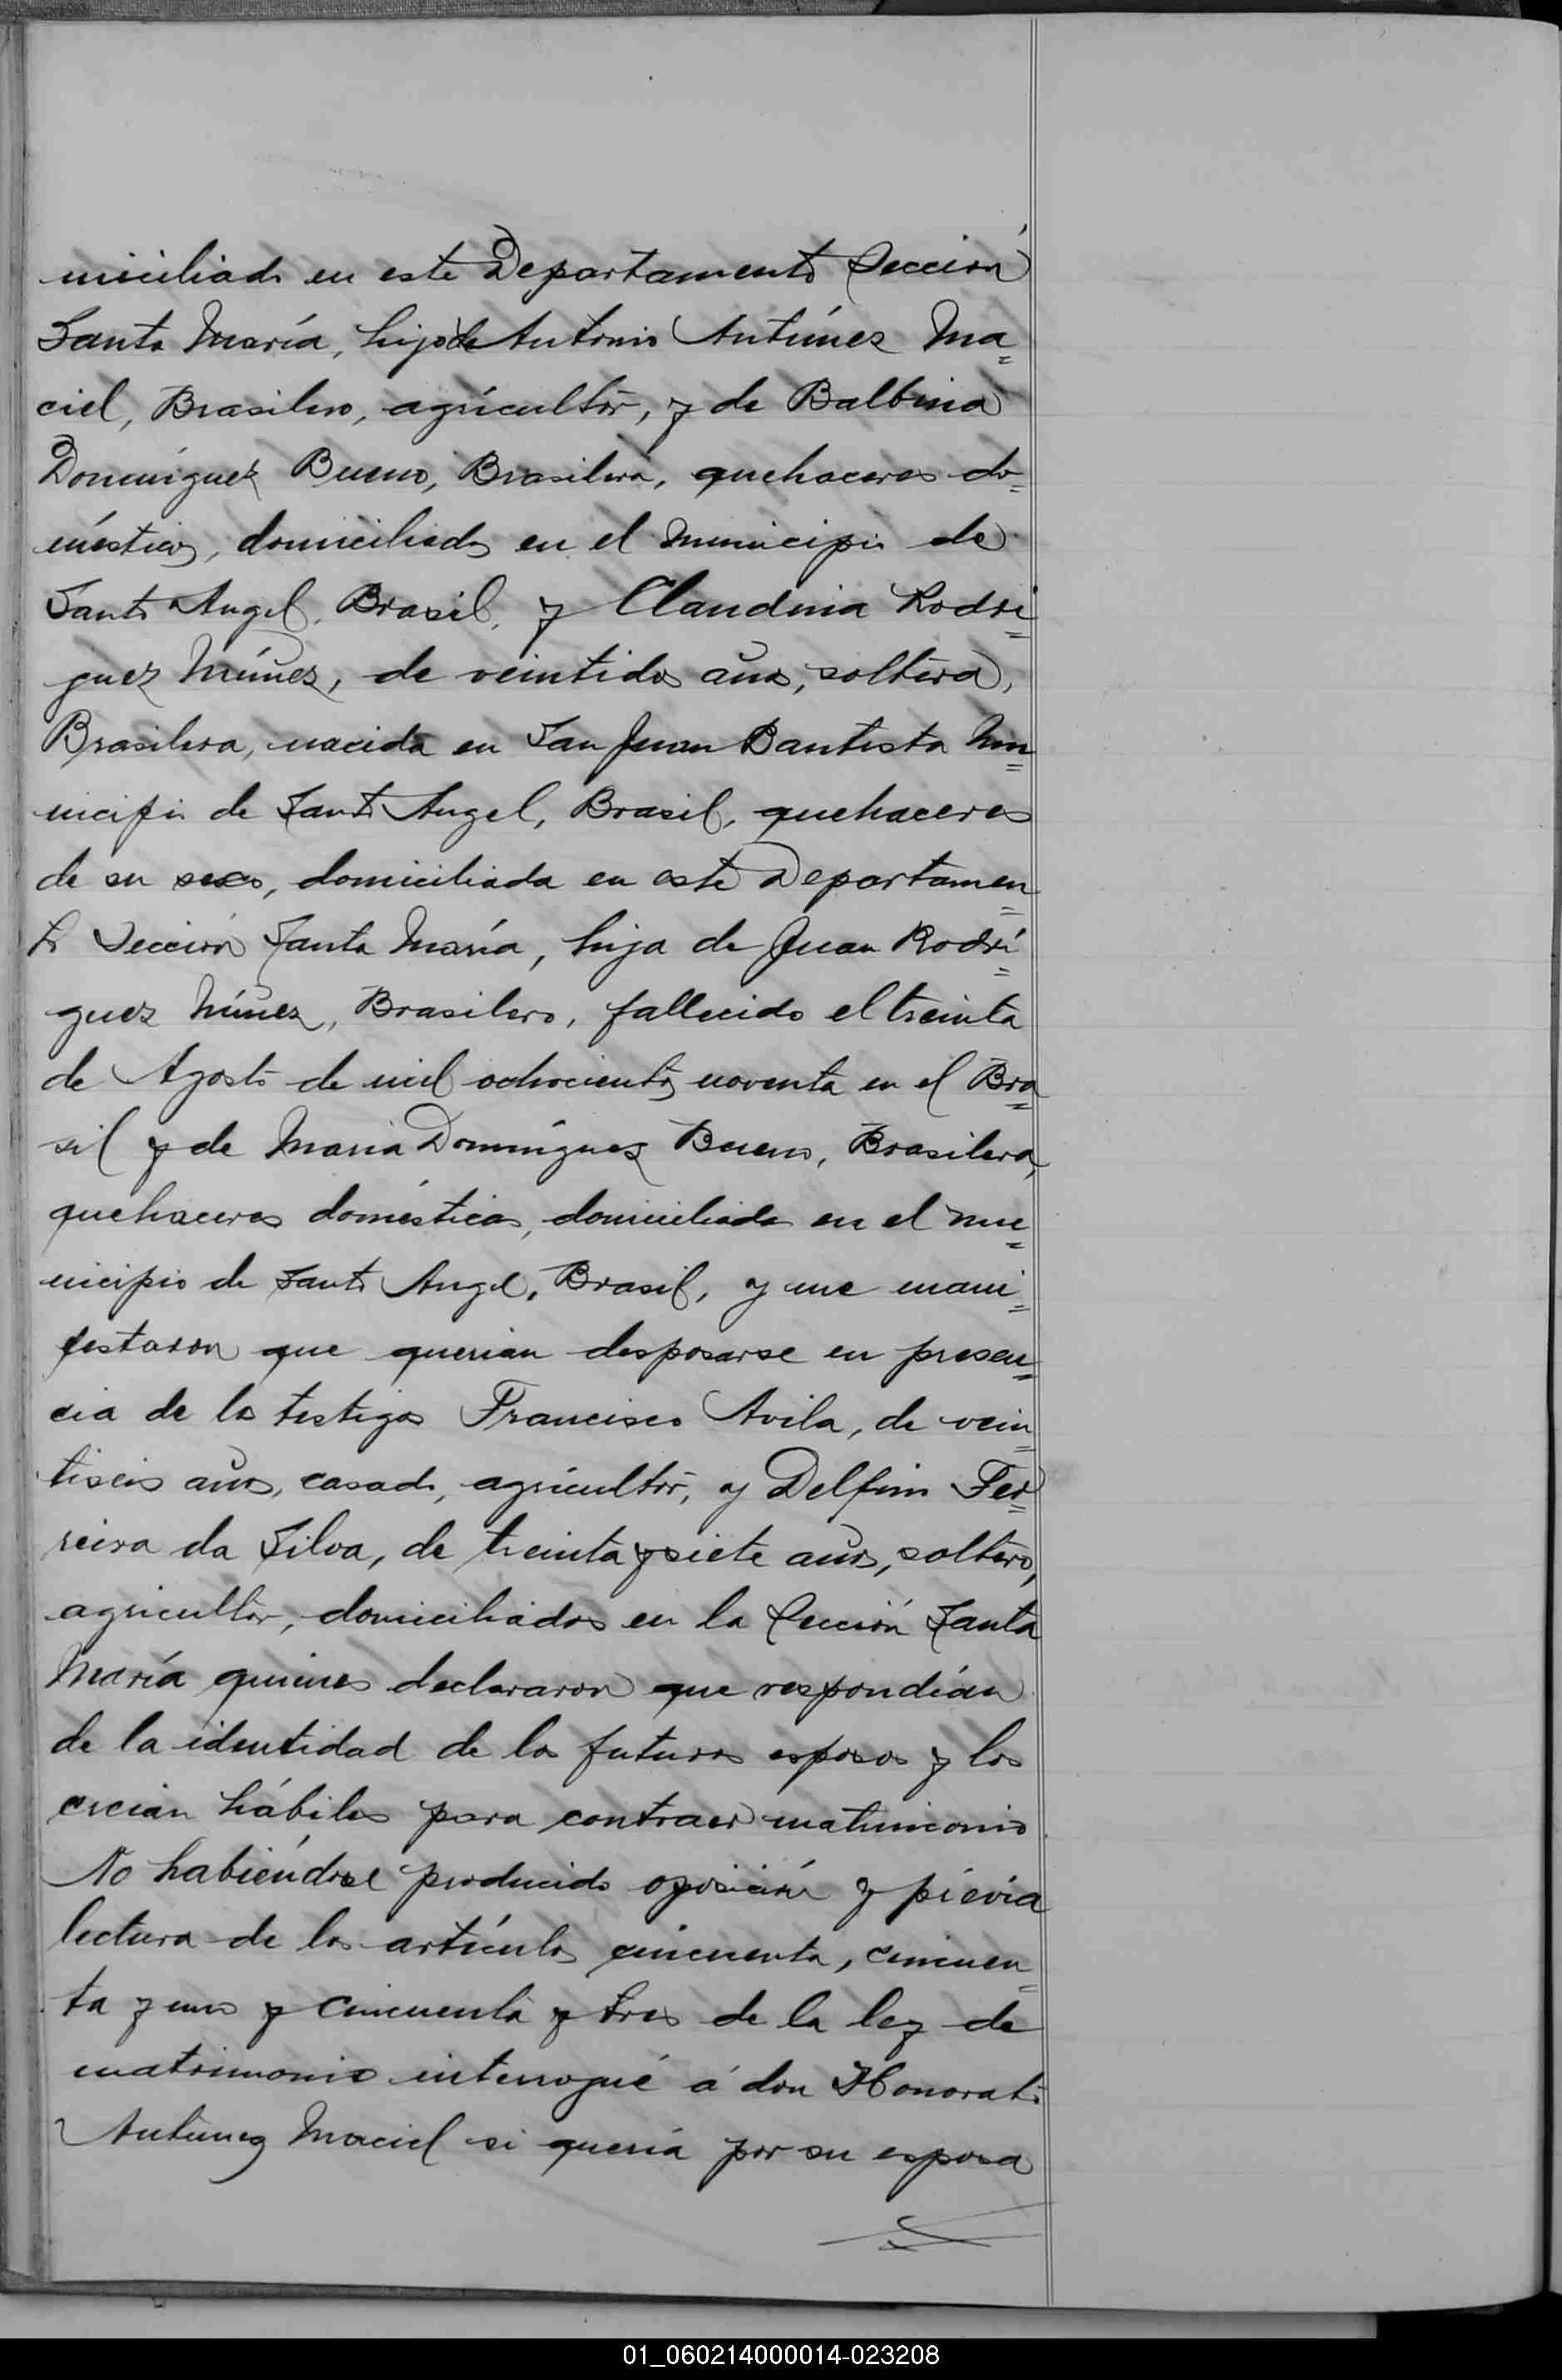 miciliado en este Departamento Sección
Santa María, hijo de Antonio Antúnez Ma=
ciel, Brasilero, agricultor, y de Balbina
Domínguez Bueno, Brasilera, quehaceres do=
mésticos, domiciliados en el Municipio de
Santo Angel, Brasil, y Claudina Rodri=
guez Núnez, de veintidos años, soltera,
Brasilera, nacida en San Juan Bautista Mu=
nicipio de Santo Angel, Brasil, quehaceres
de su sexo, domiciliada en este Departamen=
to Sección Santa María, hija de Juan Rodrí=
guez Núnez, Brasilero, fallecido el treinta
de Agosto de mil ochocientos noventa en el Bra=
sil y de Maria Domínguez Bueno, Brasilera,
quehaceres domésticos, domiciliada en el mu=
nicipio de Santo Angel, Brasil, y me mani=
festaron que querian desposarse en presen=
cia de los testigos Francisco Avila, de vein=
tiseis años, casado, agricultor, y Delfin Fer=
reira da Silva, de treinta y siete años, soltero,
agricultor, domiciliados en la Sección Santa
María quienes declararon que respondían
de la identidad de los futuros esposos y los
creian hábiles para contraer matrimonio
No habiéndose producido oposición y prévia
lectura de los artículos cincuenta, cincuen=
ta y uno y cincuenta y tres de la ley de
matrimonio interrogué á don Honorato
Antunez Maciel si quería por su esposa
01_060214000014-023208